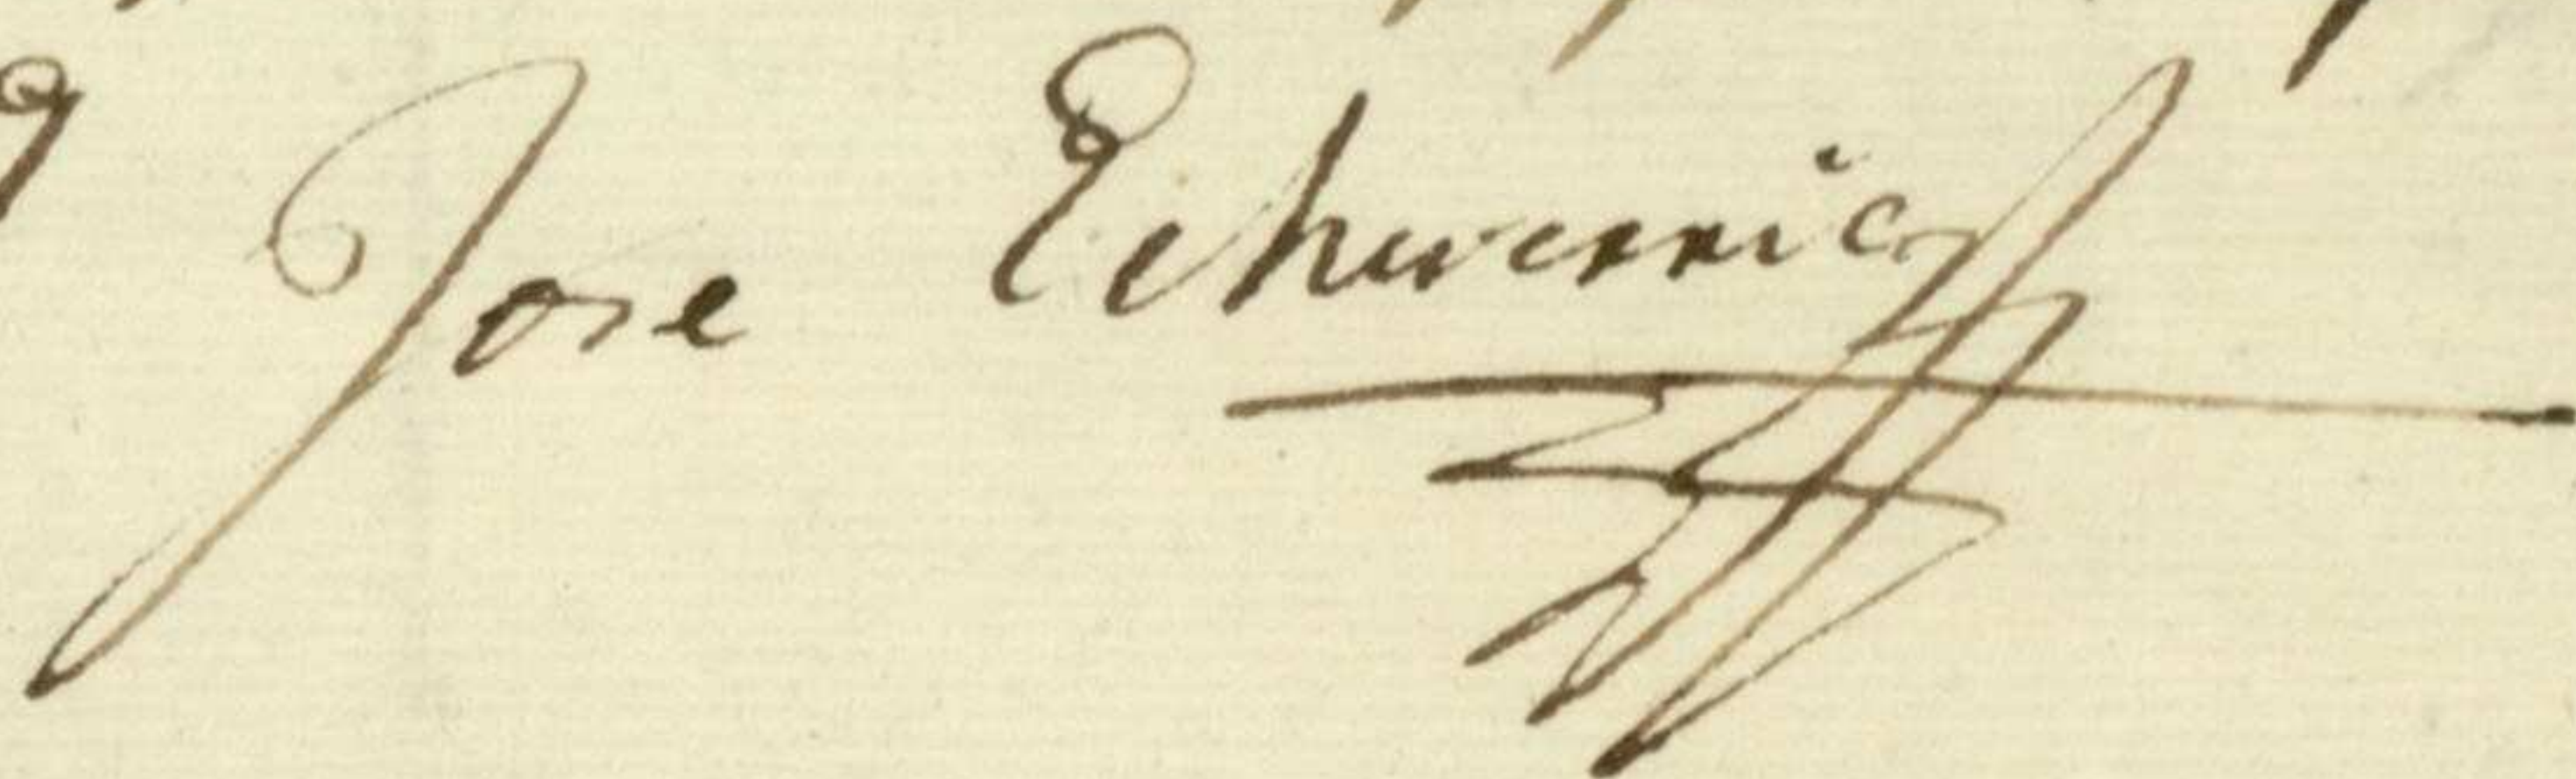 Jose Echeverria